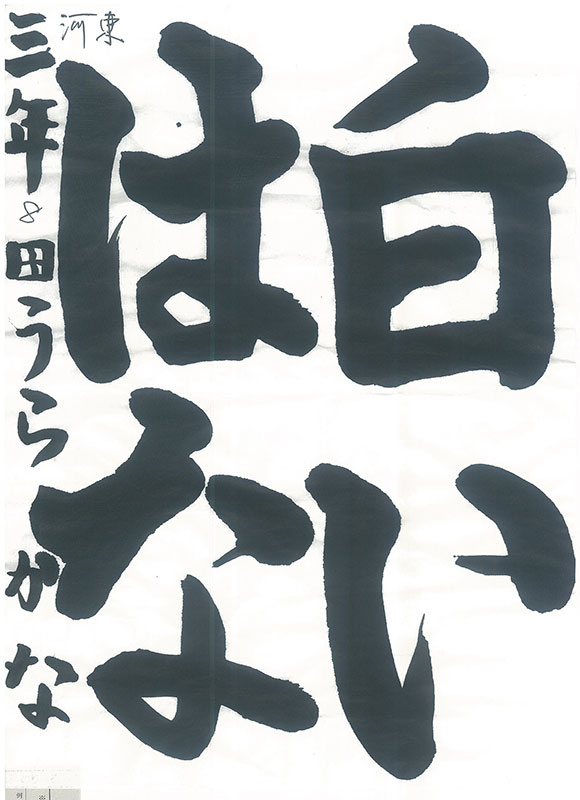 白い
はな
河東
三年 8 田うら かな